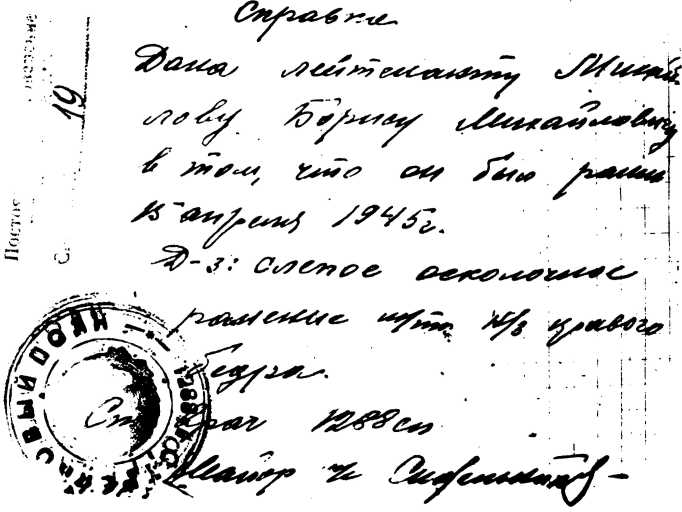 Справка
Дана лейтенанту Михай
лову Борису Михайловичу
в том, что он был ранен
15 апреля 1945г.
Д-з: слепое осколочное
ранение м/тк. н/з правого
бедра.
Ст. врач 1288сп
Майор м/с
19